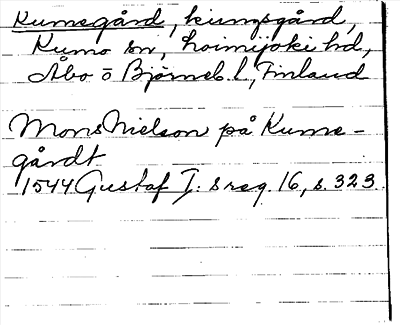 Kumogård, kungsgård,
Kumo sn, Loimijoki hd,
Åbo o Björneb. l, Finland
Mons Nielson på Kumo-
gårdt
1544 Gustaf I:s reg. 16, s. 323.